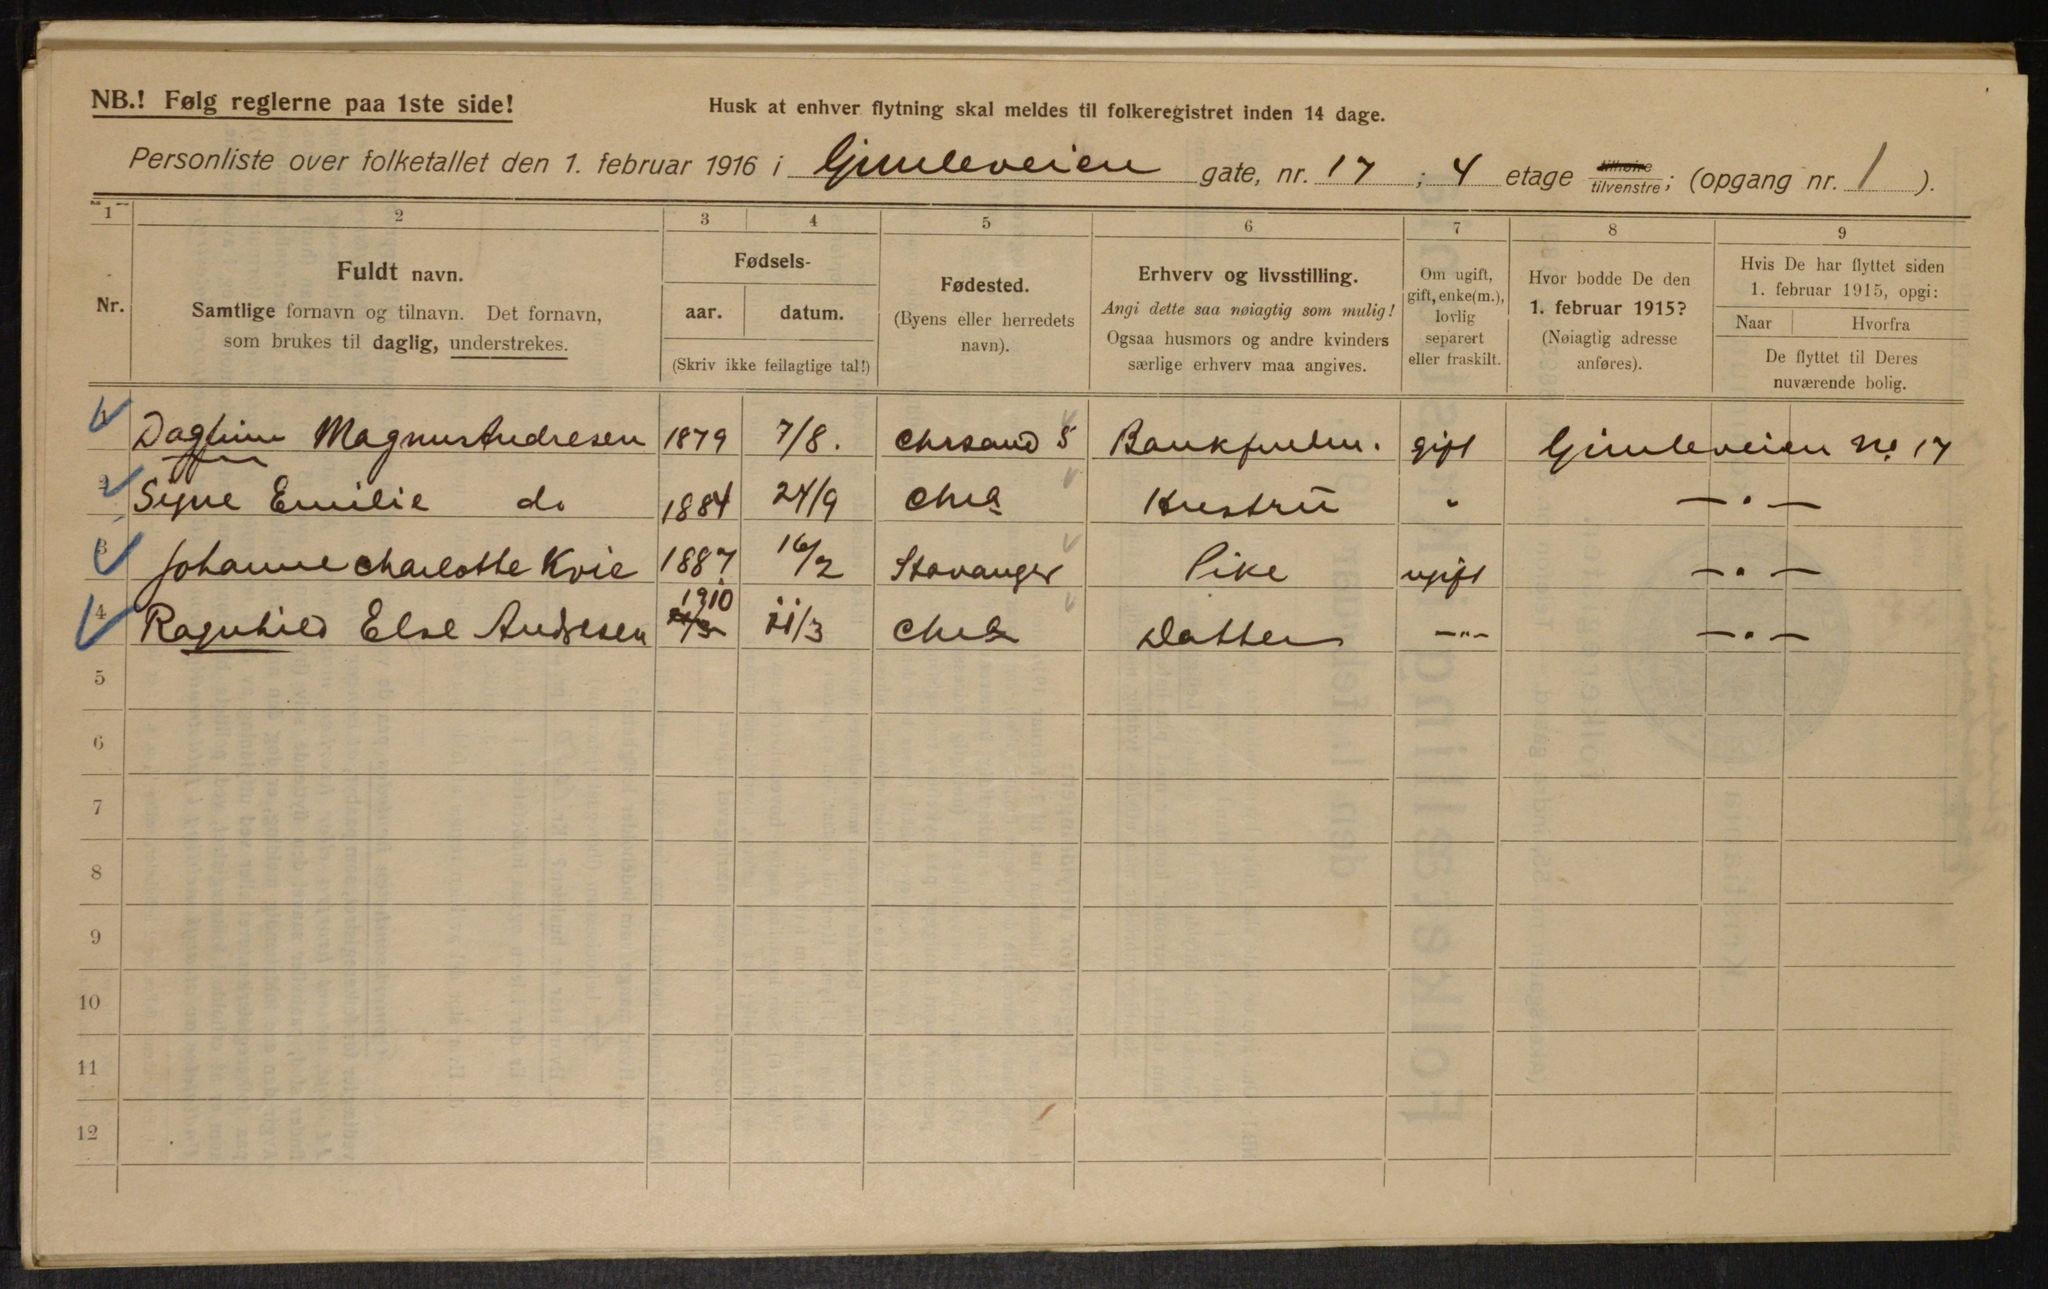 NB.! Følg reglerne paa 1ste side!
Husk at enhver flytning skal meldes til folkeregistret inden 14 dage.
Personliste over folketallet den 1. februar 1916 i Gimleveien gate, nr. 17 ; 4 etage tilhøire tilvenstre; (opgang nr. 1 ).
1 2 3 4 5 6 7 8 9
Nr.
Fuldt navn.
Samtlige fornavn og tilnavn. Det fornavn,
som brukes til daglig, understrekes.
Fødsels-
aar. datum.
(Skriv ikke feilagtige tal!)
Fødested.
(Byens eller herredets
navn).
Erhverv og livsstilling.
Angi dette saa nøiagtig som mulig!
Ogsaa husmors og andre kvinders
særlige erhverv maa angives.
Om ugift,
gift, enke(m.),
lovlig
separert
eller fraskilt.
Hvor bodde De den
1. februar 1915?
(Nøiagtig adresse
anføres).
Hvis De har flyttet siden
1. februar 1915, opgi:
Naar Hvorfra
De flyttet til Deres
nuværende bolig.
1 Dagfinn Magnus Andresen 1879 7/8. Chrsand S Bankfuldm. gift Gimleveien No. 17
2 Signe Emilie do 1884 24/9 Chra Hustru " —"—
3 Johanne Charlotte Kvie 1887 16/2 Stavanger Pike ugift —"—
4 Ragnhild Else Andresen 1910 11/3 Chra Datter —"— —"—
5
6
7
8
9
10
11
12